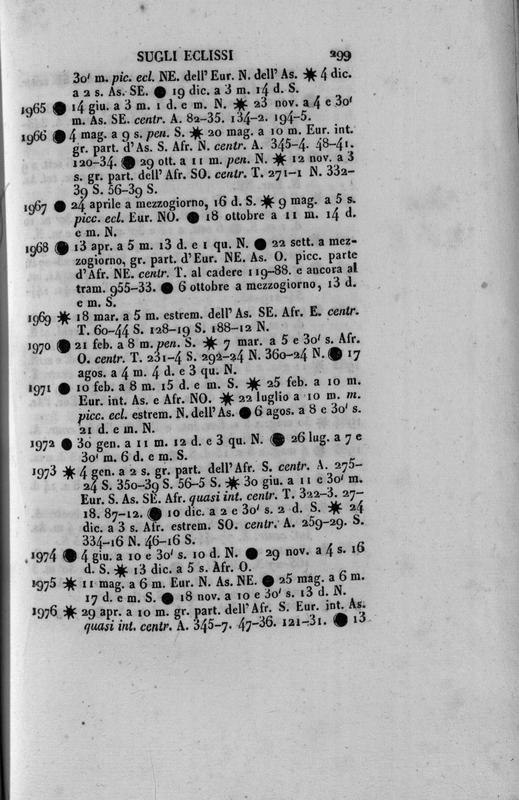 SUGLI ECLISSI 299
30' m. pic. ecl. NE. dell' Eur. N. dell' As. ✷ 4 dic.
a 2 s. As. SE. ● 19 dic. a 3 m. 14 d. S.
1965 ● 14 giu. a 3 m. 1 d. e m. N. ✷ 23 nov. a 4 e 30'
m. As. SE. centr. A. 82-35. 134-2. 194-5.
1966 ● 4 mag. a 9 s. pen. S. ✷ 20 mag. a 10 m. Eur. int.
gr. part. d'As. S. Afr. N. centr. A. 345-4. 48-41.
120-34. ● 29 ott. a 11 m. pen. N. ✷ 12 nov. a 3
s. gr. part. dell' Afr. SO. centr. T. 271-1 N. 332-
39 S. 56-39 S.
1967 ● 24 aprile a mezzogiorno, 16 d. S. ✷ 9 mag. a 5 s.
picc. ecl. Eur. NO. ● 18 ottobre a 11 m. 14 d.
e m. N.
1968 ● 13 apr. a 5 m. 13 d. e 1 qu. N. ● 22 sett. a mez-
zogiorno, gr. part. d'Eur. NE. As. O. picc. parte
d'Afr. NE. centr. T. al cadere 119-88. e ancora al
tram. 955-33. ● 6 ottobre a mezzogiorno, 13 d.
e m. S.
1969 ✷ 18 mar. a 5 m. estrem. dell' As. SE. Afr. E. centr.
T. 60-44 S. 128-19 S. 188-12 N.
1970 ● 21 feb. a 8 m. pen. S. ✷ 7 mar. a 5 e 30' s. Afr.
O. centr. T. 231-4 S. 292-24 N. 360-24 N. ● 17
agos. a 4 m. 4 d. e 3 qu. N.
1971 ● 10 feb. a 8 m. 15 d. e m. S. ✷ 25 feb. a 10 m.
Eur. int. As. e Afr. NO. ✷ 22 luglio a 10 m. m.
picc. ecl. estrem. N. dell' As. ● 6 agos. a 8 e 30' s.
21 d. e m. N.
1972 ● 30 gen. a 11 m. 12 d. e 3 qu. N. ● 26 lug. a 7 e
30' m. 6 d. e m. S.
1973 ✷ 4 gen. a 2 s. gr. part. dell' Afr. S. centr. A. 275-
24 S. 350-39 S. 56-5 S. ✷ 30 giu. a 11 e 30' m.
Eur. S. As. SE. Afr. quasi int. centr. T. 322-3. 27-
18. 87-12. ● 10 dic. a 2 e 30' s. 2 d. S. ✷ 24
dic. a 3 s. Afr. estrem. SO. centr. A. 259-29. S.
334-16 N. 46-16 S.
1974 ● 4 giu. a 10 e 30' s. 10 d. N. ● 29 nov. a 4 s. 16
d. S. ✷ 13 dic. a 5 s. Afr. O.
1975 ✷ 11 mag. a 6 m. Eur. N. As. NE. ● 25 mag. a 6 m.
17 d. e m. S. ● 18 nov. a 10 e 30' s. 13 d. N.
1976 ✷ 29 apr. a 10 m. gr. part. dell' Afr. S. Eur. int. As.
quasi int. centr. A. 345-7. 47-36. 121-31. ● 13